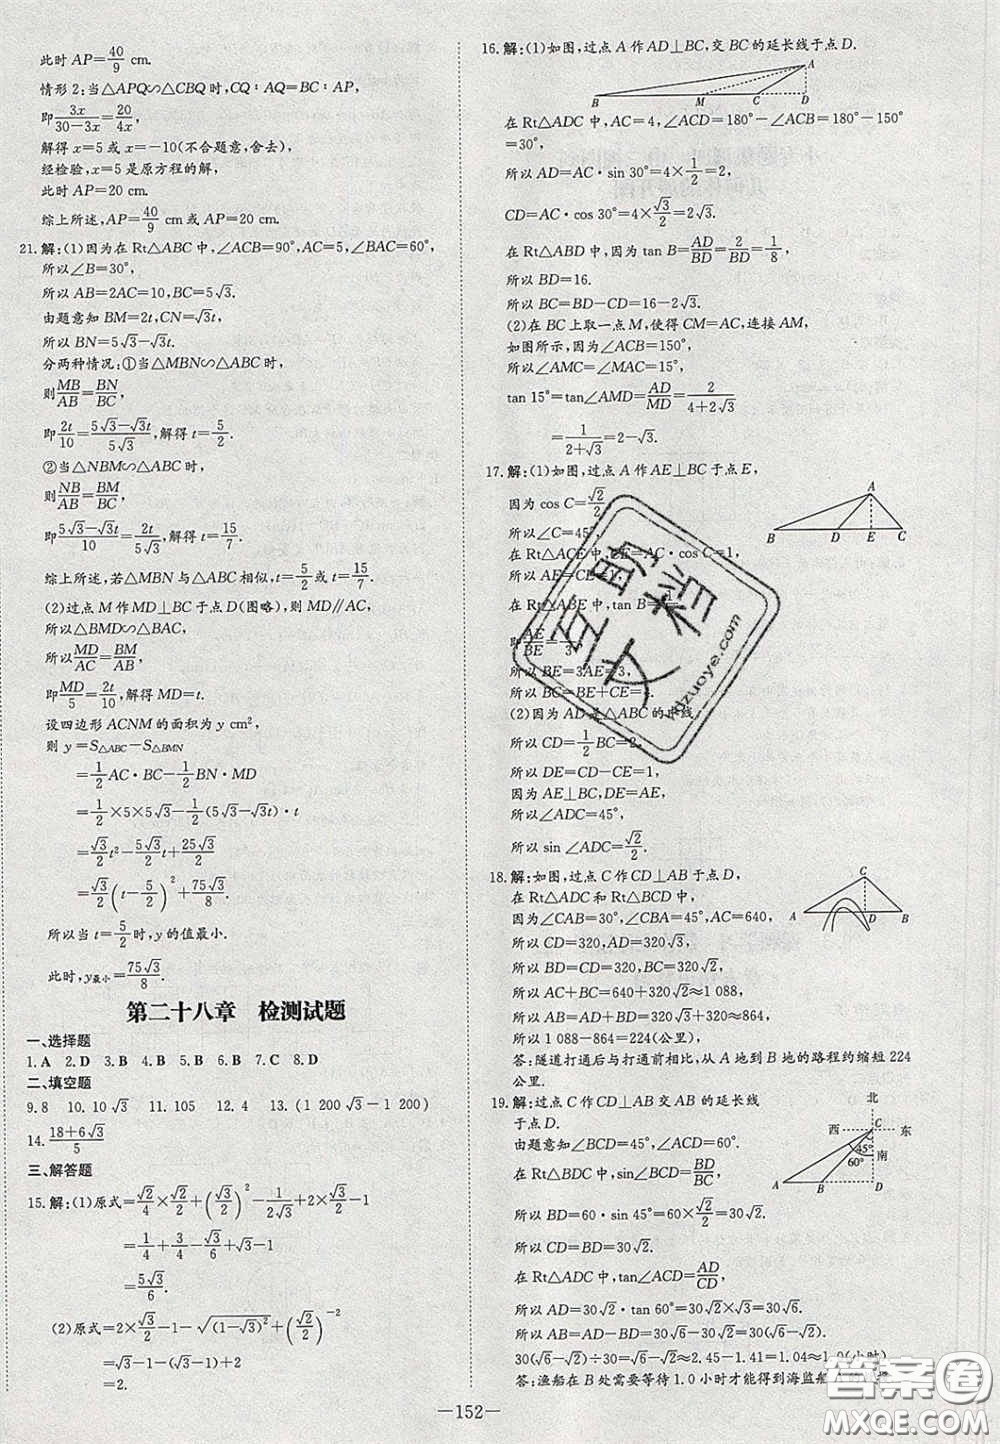 此时 AP=40/9 cm.
情形2:当△APQ∽△CBQ时,CQ∶AQ=BC∶AP,
即3x/(30-3x)=20/4x,
解得 x=5或 x=-10(不合题意,舍去).
经检验,x=5是原方程的解,
此时 AP=20 cm.
综上所述,AP=40/9 cm或 AP=20 cm.
21.解:(1)因为在Rt△ABC中,∠ACB=90°,AC=5,∠BAC=60°,
所以∠B=30°,
所以 AB=2AC=10,BC=5√3.
由题意知 BM=2t,CN=√3t,
所以 BN=5√3-√3t.
分两种情况:①当△MBN∽△ABC时,
则MB/AB=BN/BC,
即2t/10=(5√3-√3t)/5√3,解得 t=5/2.
②当△NBM∽△ABC时,
则NB/AB=BM/BC,
即(5√3-√3t)/10=2t/5√3,解得 t=15/7.
综上所述,若△MBN与△ABC相似,t=5/2或15/7.
(2)过点M作MD⊥BC于点D(图略),则MD∥AC,
所以△BMD∽△BAC,
所以MD/AC=BM/AB,
即MD/5=2t/10,解得 MD=t.
设四边形ACNM的面积为y cm²,
则 y=S△ABC-S△BMN
=1/2AC·BC-1/2BN·MD
=1/2×5×5√3-1/2(5√3-√3t)·t
=√3/2t²-5√3/2t+25√3/2
=√3/2(t-5/2)²+75√3/8.
所以当 t=5/2时,y的值最小.
此时,y最小=75√3/8.
第二十八章 检测试题
一、选择题
1.A 2.D 3.B 4.B 5.B 6.B 7.C 8.D
二、填空题
9.8 10.10√3 11.105 12.4 13.(1 200√3-1 200)
14.(18+6√3)/5
三、解答题
15.解:(1)原式=√2/4×√2/2+(√3/2)²-1/2√3+2×√3/2-1
=1/4+3/4-√3/6+√3-1
=5√3/6.
(2)原式=2×√3/2-1-√((1-√3)²)+(√2/2)⁻²
=√3-1-(√3-1)+2
=2.
16.解:(1)如图,过点A作AD⊥BC,交BC的延长线于点D.
A
B M C D
在Rt△ADC中,AC=4,∠ACD=180°-∠ACB=180°-150°
=30°,
所以 AD=AC·sin 30°=4×1/2=2,
CD=AC·cos 30°=4×√3/2=2√3.
在Rt△ABD中,tan B=AD/BD=2/BD=1/8,
所以 BD=16.
所以 BC=BD-CD=16-2√3.
(2)在BC上取一点M,使得CM=AC,连接AM,
如图所示,因为∠ACB=150°,
所以∠AMC=∠MAC=15°,
tan 15°=tan∠AMD=AD/MD=2/(4+2√3)
=1/(2+√3)=2-√3.
17.解:(1)如图,过点A作AE⊥BC于点E,
因为 cos C=√2/2,
所以∠C=45°,
在Rt△ACE中,CE=AC·cos C=1,
所以AE=CE=1,
A
B D E C
在Rt△ABE中,tan B=1/3,
即AE/BE=1/3,
所以 BE=3AE=3,
所以 BC=BE+CE=4.
(2)因为AD是△ABC的中线,
所以 CD=1/2BC=2,
所以 DE=CD-CE=1,
因为 AE⊥BC,DE=AE,
所以∠ADC=45°,
所以 sin ∠ADC=√2/2.
18.解:如图,过点C作CD⊥AB于点D,
在Rt△ADC和Rt△BCD中,
因为∠CAB=30°,∠CBA=45°,AC=640,
所以 CD=320,AD=320√3,
C
A D B
所以 BD=CD=320,BC=320√2,
所以 AC+BC=640+320√2≈1 088,
所以 AB=AD+BD=320√3+320≈864,
所以 1 088-864=224(公里),
答:隧道打通后与打通前相比,从A地到B地的路程约缩短224
公里.
19.解:过点C作CD⊥AB交AB的延长线
于点D.
由题意知∠BCD=45°,∠ACD=60°,
在Rt△BDC中,sin∠BCD=BD/BC,
北
西 C 东
45° 南
60°
A B D
所以 BD=60·sin 45°=60×√2/2=30√2,
所以 CD=BD=30√2.
在Rt△ADC中,tan∠ACD=AD/CD,
所以 AD=30√2·tan 60°=30√2×√3=30√6,
所以 AB=AD-BD=30√6-30√2=30(√6-√2).
30(√6-√2)÷30=√6-√2≈2.45-1.41=1.04≈1.0(小时).
答:渔船在B处需要等待1.0小时才能得到海监船A
—152—
互助文档
hdzuoye.com
答案圈
MXQE.COM